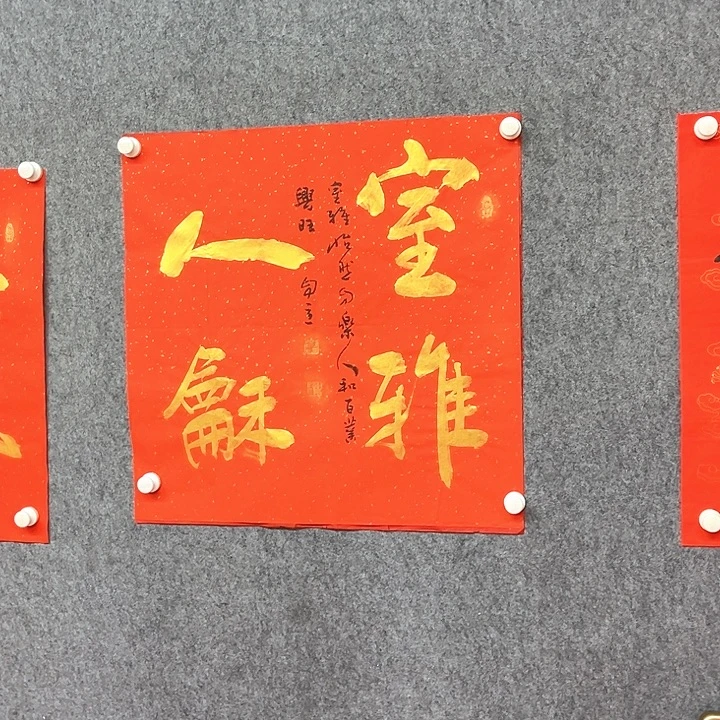 室雅
人龢
室雅怡然自樂人和百業
興旺